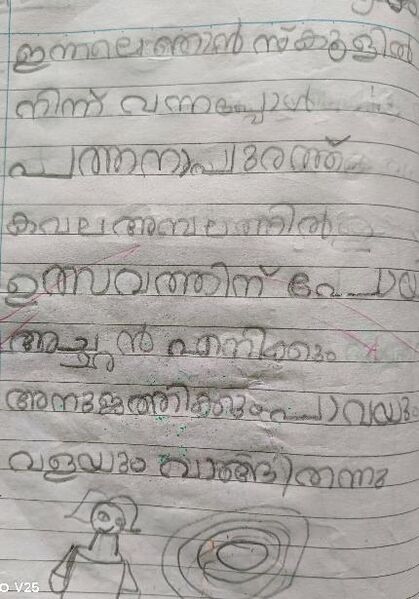 ഇന്നലെ ഞാൻ സ്കൂളിൽ
നിന്ന് വന്നപ്പോൾ
പത്തനാപുരത്ത്
കവല അമ്പലത്തിൽ
ഉത്സവത്തിന് പോയി
അച്ചൻ എനിക്കും
അനുജത്തിക്കും പാവയും
വളയും വാങ്ങി തന്നു
V25